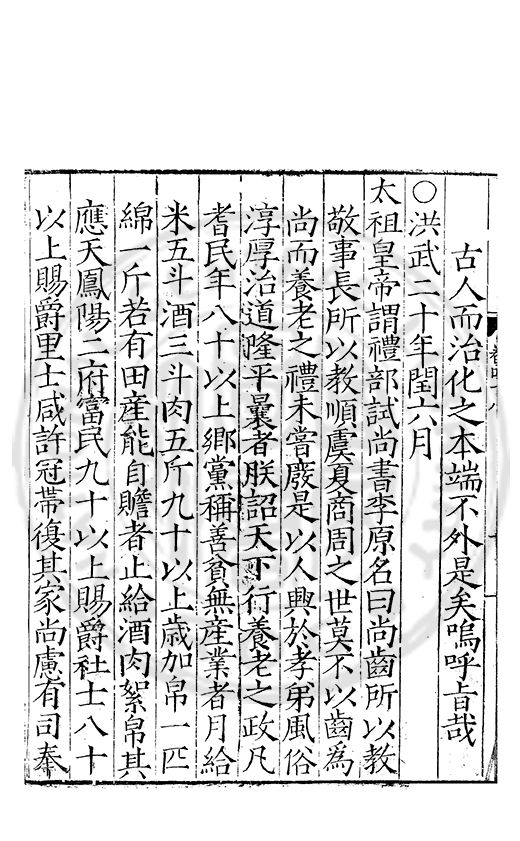 古人而治化之本端不外是矣嗚呼旨哉
○洪武二十年閏六月
太祖皇帝謂禮部試尚書李原名曰尚齒所以教
敬事長所以教順虞夏商周之世莫不以齒為
尚而養老之禮未嘗廢是以人興於孝弟風俗
淳厚治道隆平曩者朕詔天下行養老之政凡
耆民年八十以上鄉黨稱善貧無産業者月給
米五斗酒三斗肉五斤九十以上歲加帛一匹
綿一斤若有田産能自贍者止給酒肉絮帛其
應天鳳陽二府富民九十以上賜爵社士八十
以上賜爵里士咸許冠帶復其家尚慮有司奉